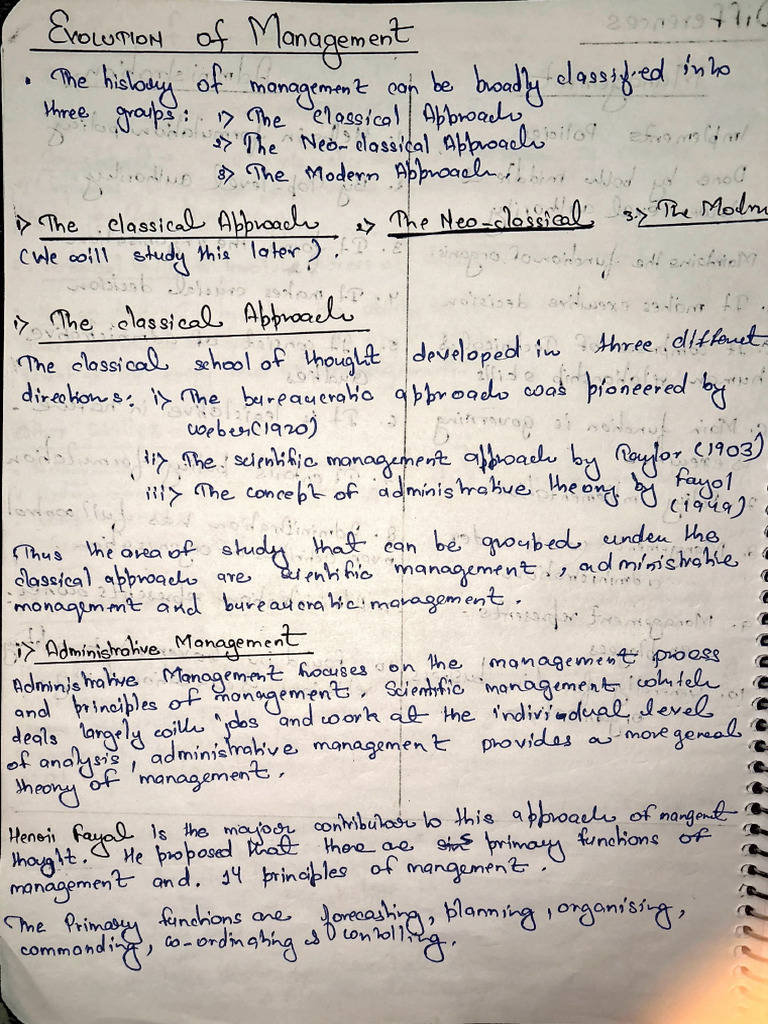 EVOLUTION of Management
• The history of management can be broadly classified into
three groups: 1) The Classical Approach
2) The Neo-classical Approach
3) The Modern Approach.
1) The classical Approach 2) The Neo-classical 3) The Modrn
(We will study this later).
1) The classical Approach
The classical school of thought developed in three different
directions: i) The bureaucratic approach was pioneered by
Weber(1920)
ii) The scientific management approach by Taylor (1903)
iii) The concept of administrative theory by Fayol
(1949)
Thus the area of study that can be grouped under the
classical approach are scientific management, administrative
management and bureaucratic management.
i) Administrative Management
Administrative Management focuses on the management process
and principles of management. Scientific management which
deals largely with jobs and work at the individual level
of analysis, administrative management provides a more general
theory of management.
Henrii Fayal is the major contributor to this approach of mangemt
thought. He proposed that there are primary functions of
management and. 14 principles of mangement.
The Primary functions are forecasting, planning, organising,
commanding, co-ordinating & controlling.